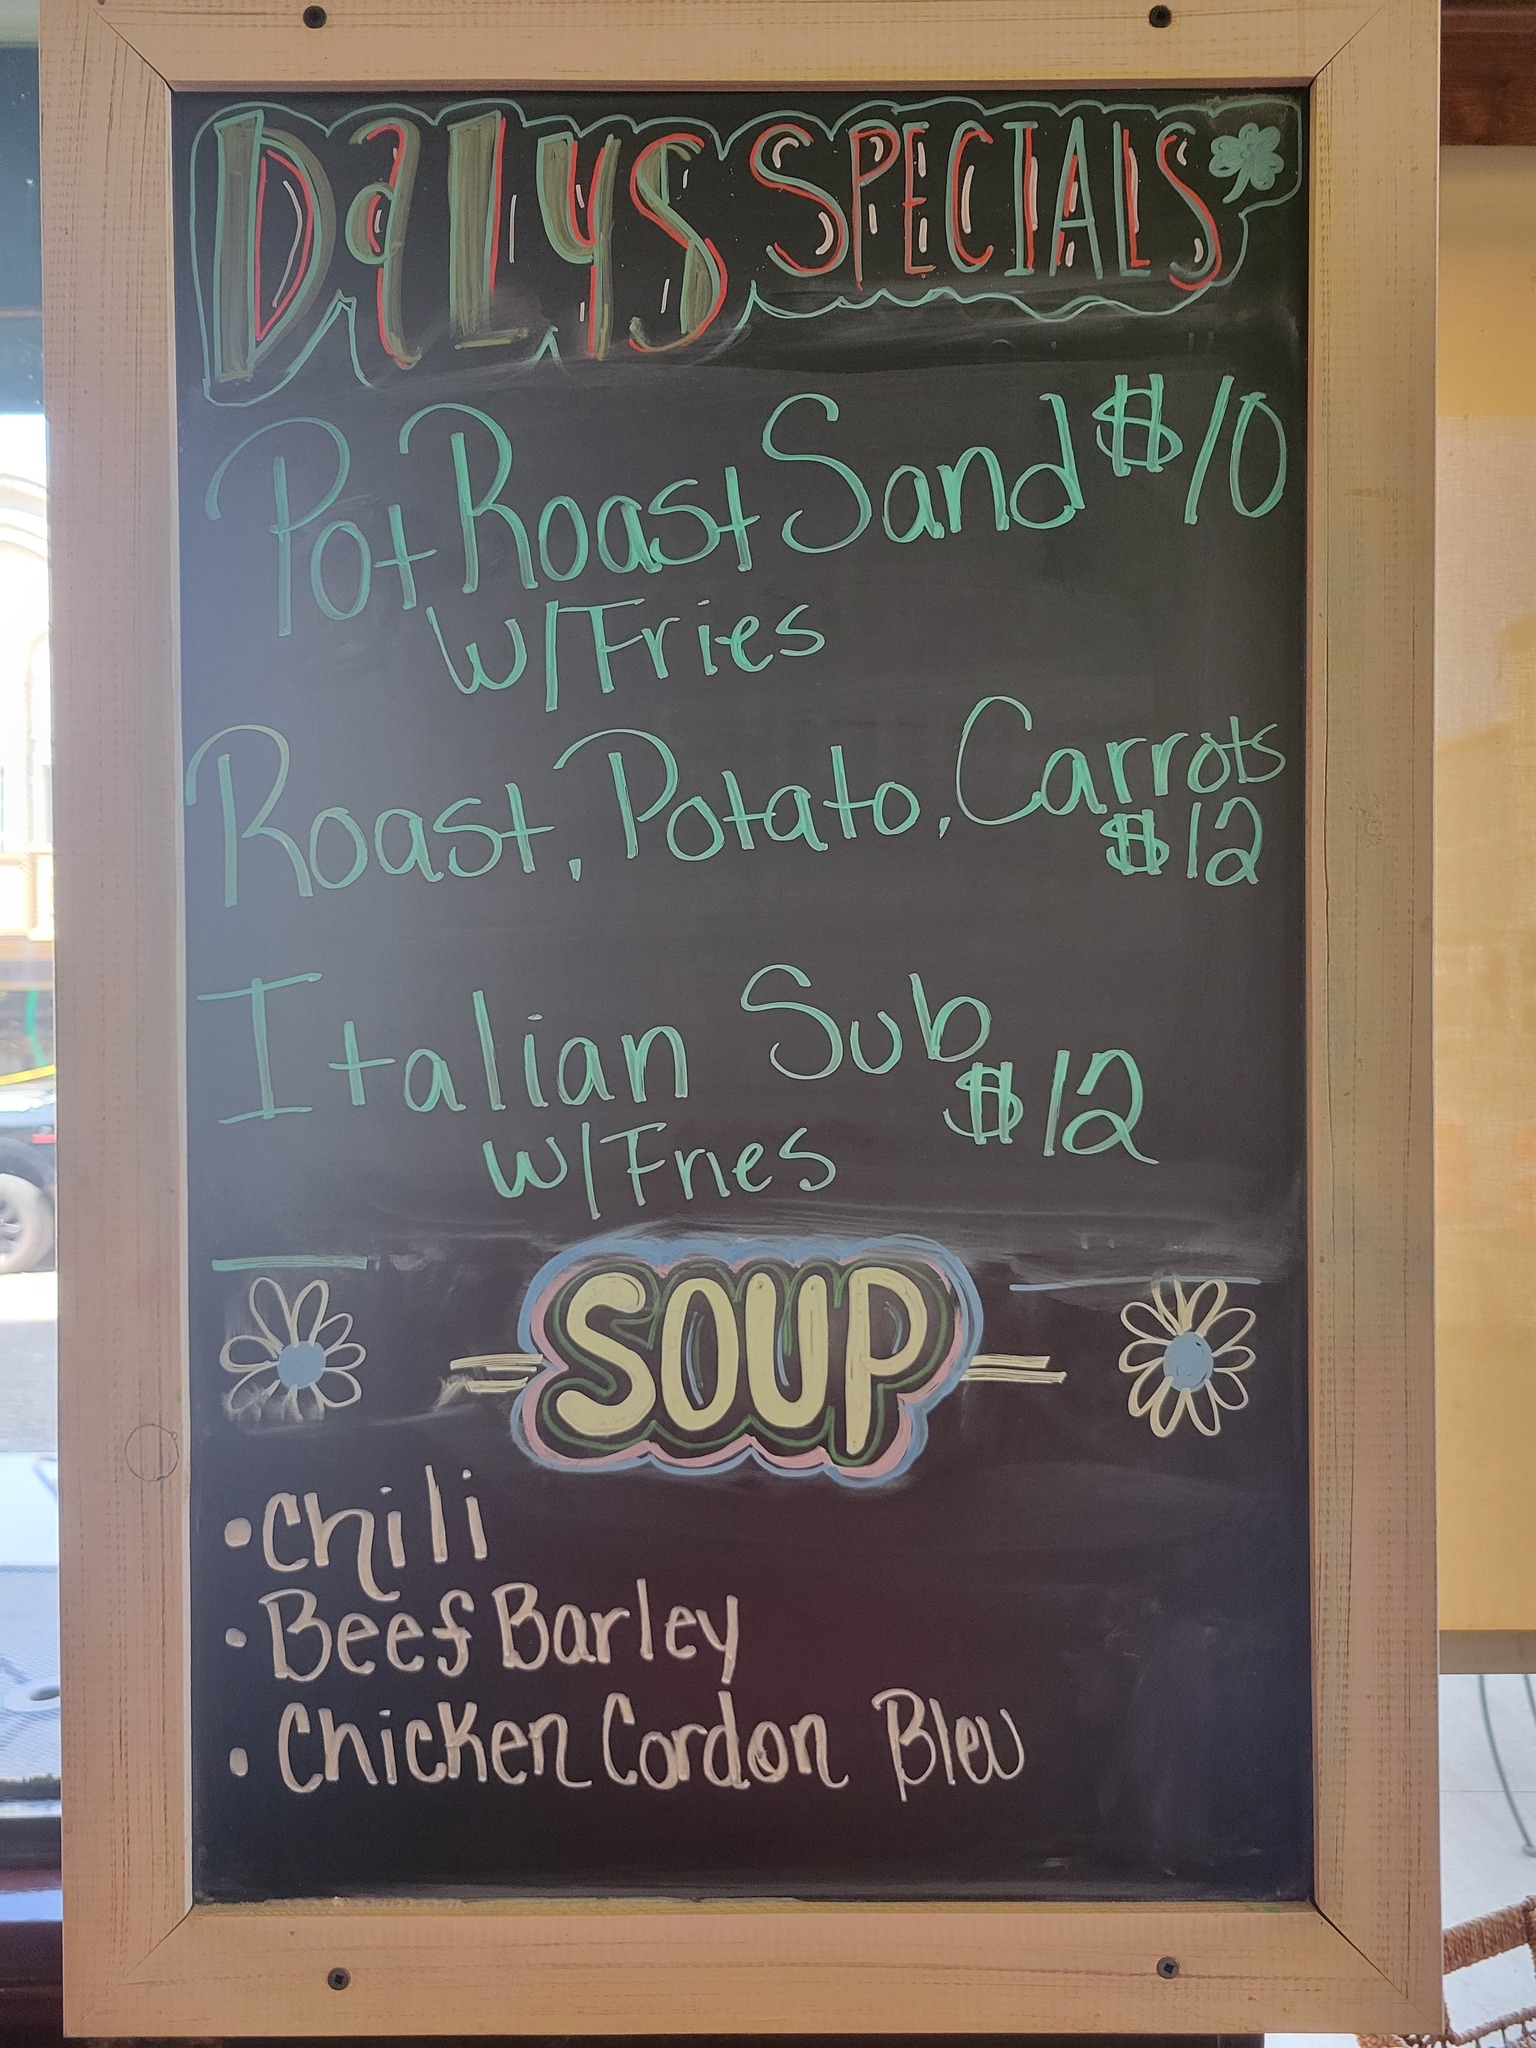 DaLys SPECIALS
Pot Roast Sand $10
w/Fries
Roast, Potato, Carrots
$12
Italian Sub
$12
w/Fries
SOUP
• Chili
• Beef Barley
• Chicken Cordon Bleu